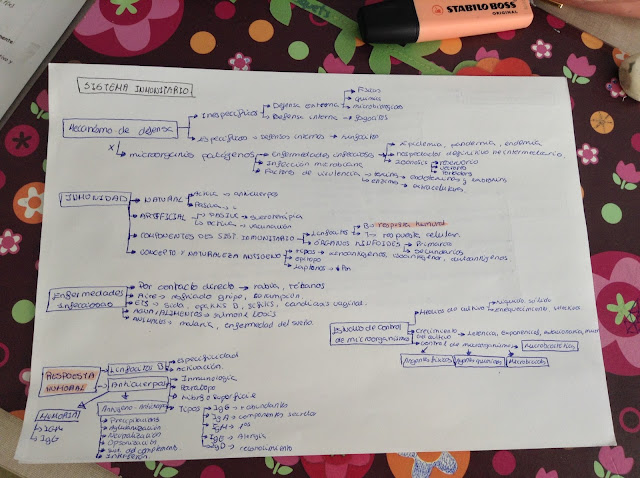 STABILO BOSS
ORIGINAL
SISTEMA INMUNITARIO
Mecanismo de defensa
Inespecíficos → Defensa externa
Físicas
químicas
microbiológicas
Defensa interna → fagocitos
específicos → Defensas internas → linfocitos
x microorganismos patógenos
Enfermedades infecciosas
Epidemia, pandemia, endemia
Zoonosis
reservorio
Infección microbiana
Factores de virulencia
toxinas → endotoxinas y exotoxinas
enzimas → extracelulares
INMUNIDAD
NATURAL
Activa → anticuerpos
Pasiva →
ARTIFICIAL
PASIVA → sueroterapia
activa → vacunación
COMPONENTES DEL SIST. INMUNITARIO
Linfocitos
B → respuesta humoral
T → respuesta celular
ÓRGANOS LINFOIDES
Primarios
Secundarios
CONCEPTO Y NATURALEZA ANTÍGENO
Tipos → xenoantígenos, isoantígenos, autoantígenos
epítopo
haptenos
Enfermedades infecciosas
Por contacto directo → rabia, tétanos
Aire → resfriado, gripe,
ETS → Sida, hepatitis B, sífilis, candidiasis vaginal
AGUA/ALIMENTOS → salmonelosis
ANIMALES → malaria, enfermedad del sueño
Estudio de control de microorganismo
Medios de cultivo
líquido, sólido
enriquecimiento, selectivo
Crecimiento de cultivo → Latencia, exponencial, estacionaria, muerte
Control de microorganismo
Agentes físicos
Agentes químicos
Microbicidas
RESPUESTA HUMORAL
Linfocitos B
especificidad
activación
Anticuerpos
Inmunología
Paratopo
Libres o superficie
MEMORIA
→ IgM
→ IgG
Antígeno-Anticuerpo
Precipitación
Aglutinación
Neutralización
Opsonización
Sist. del complemento
Interferón
Tipos
IgG → + abundantes
IgA → componentes secretor
IgM → 1ªs
IgE → Alergia
IgD → reconocimiento